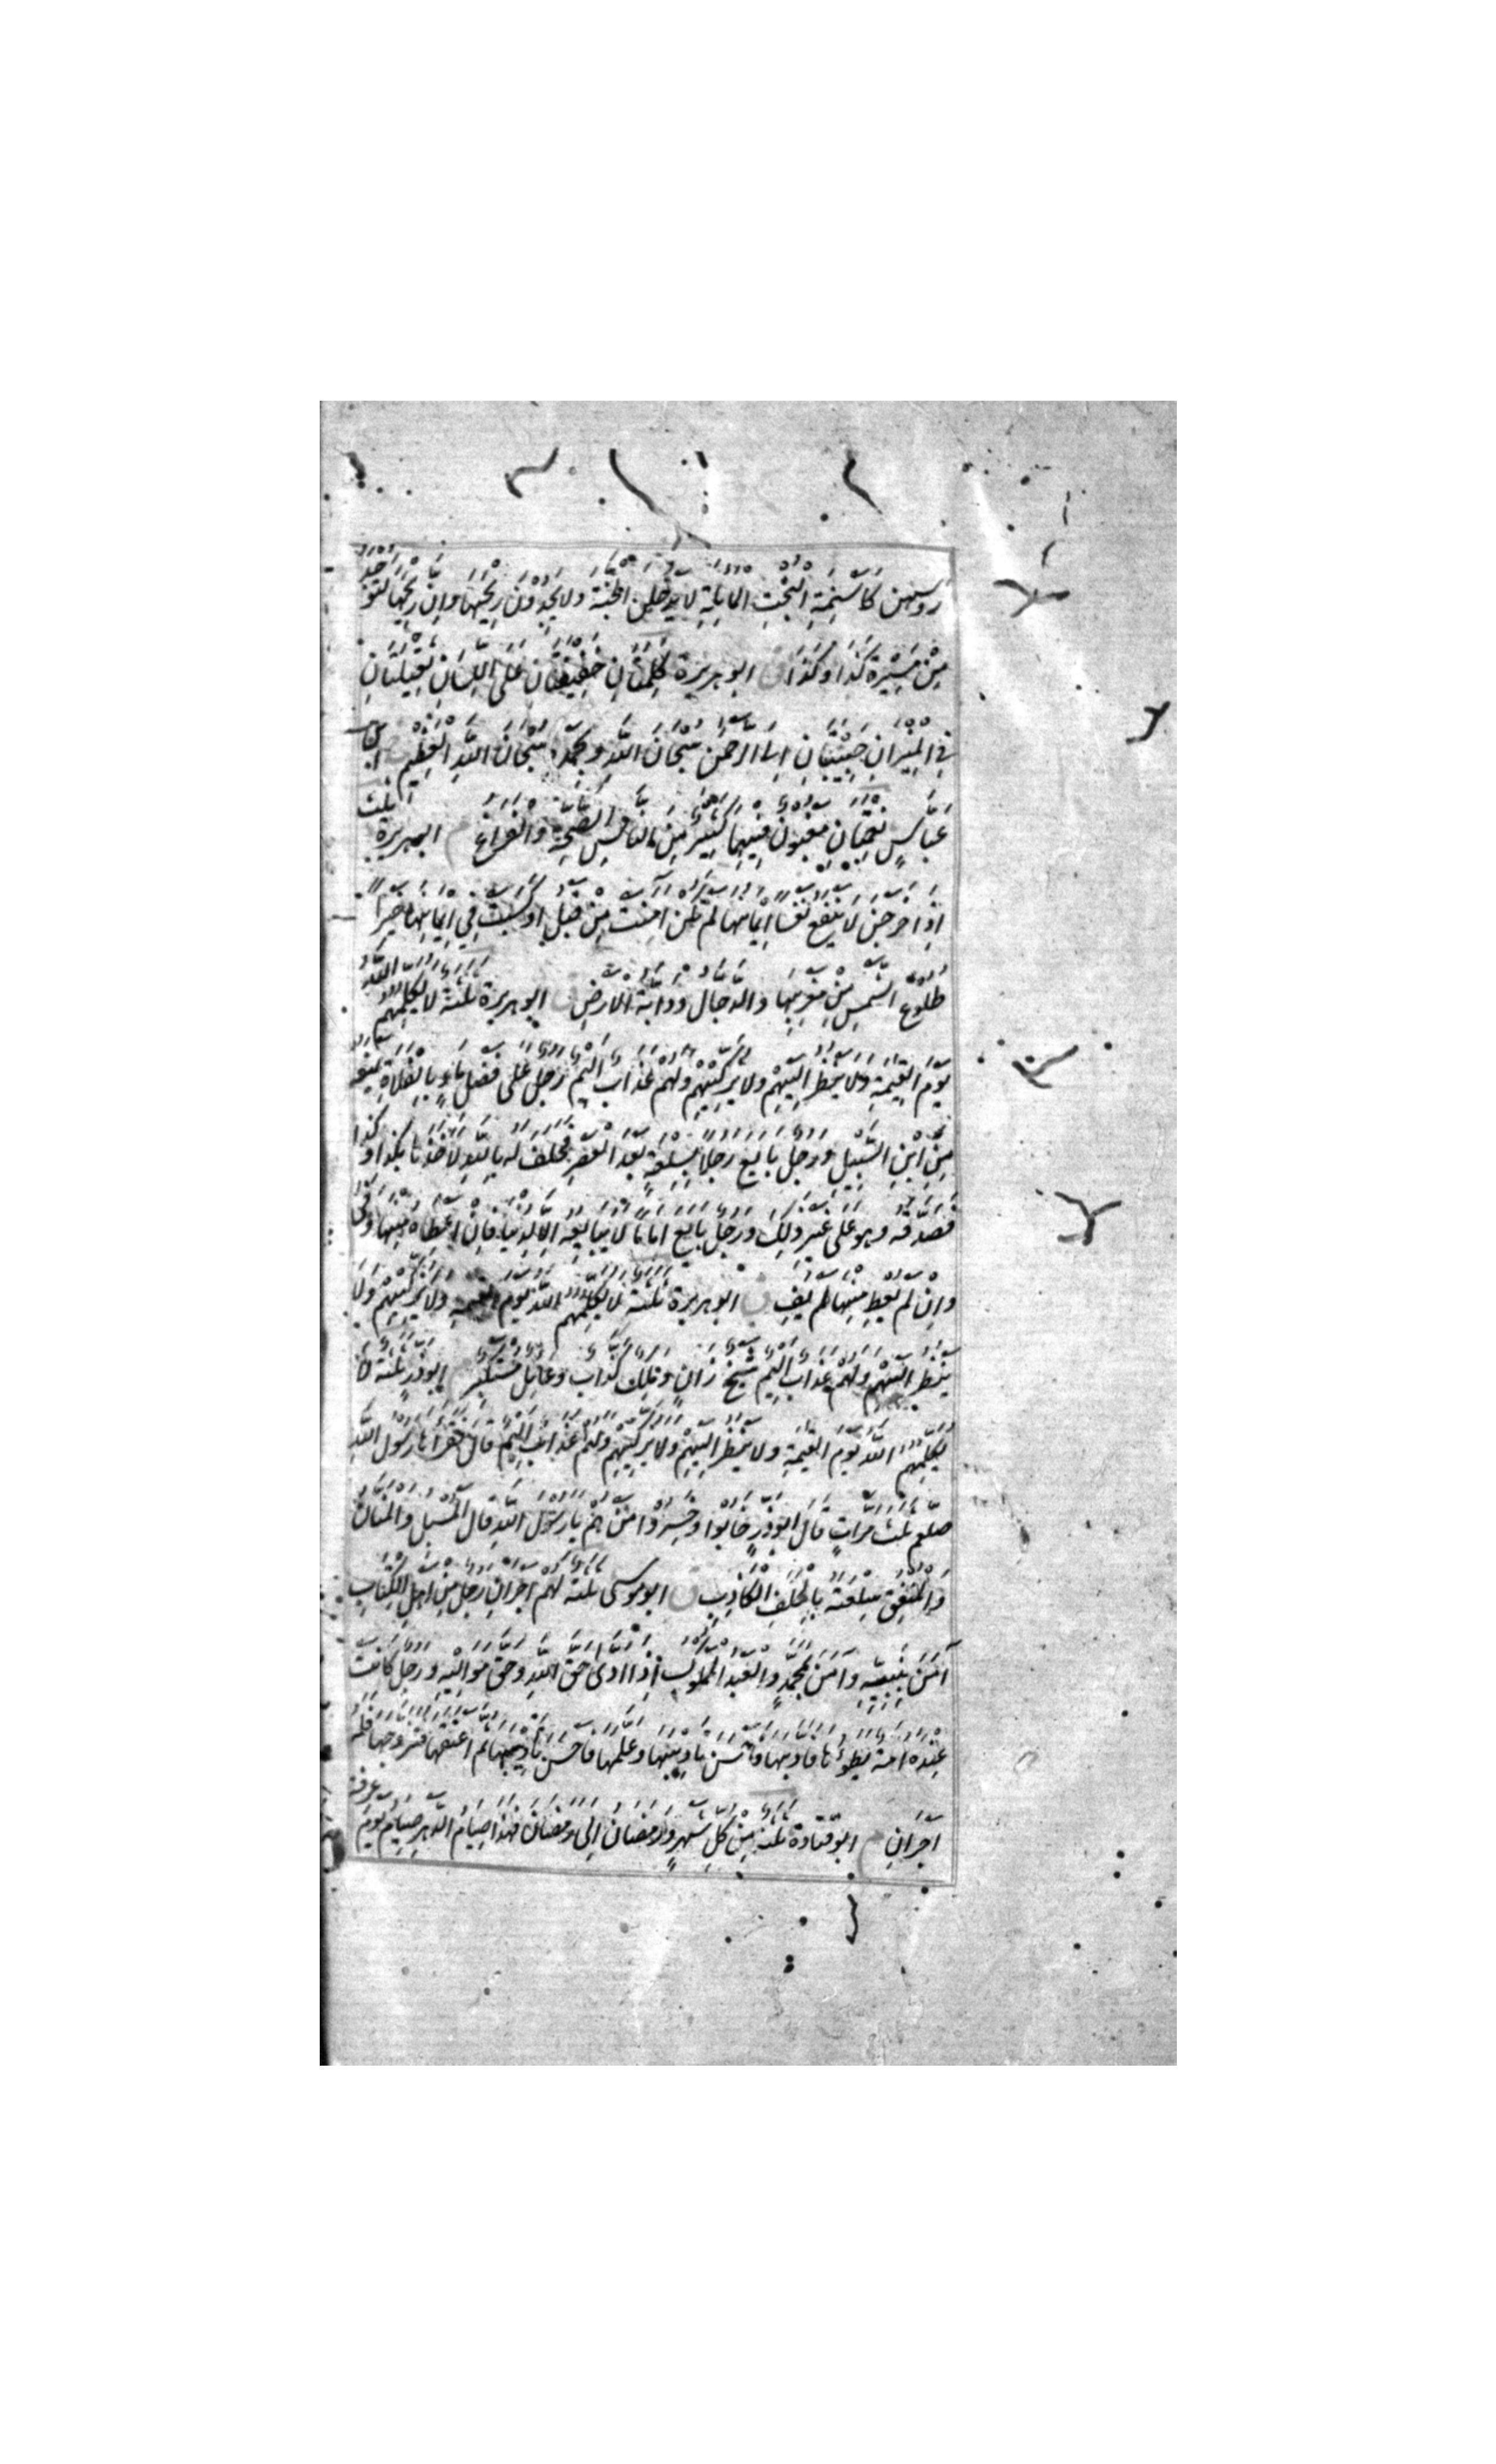 رؤسهن كَاَسْنِمَةِ الْبُخْتِ الْمَائِلَةِ لَا يَدْخُلْنَ الجنة ولا يجدون رِيْحَهَا وَاِنَّ رِيْحَهَا لَتُوْجَدُ
مِنْ مَسِيْرَةِ كَذَا وَكَذَا ق ابو هريرة كَلِمَتَانِ خَفِيْفَتَانِ عَلَى اللِّسَانِ ثَقِيْلَتَانِ
فِي الْمِيْزَانِ حَبِيْبَتَانِ اِلَى الرَّحْمٰنِ سُبْحَانَ اللّٰهِ وَبِحَمْدِهِ سُبْحَانَ اللّٰهِ الْعَظِيْمِ ابن
عَبَّاسٍ نِعْمَتَانِ مَغْبُوْنٌ فِيْهِمَا كَثِيْرٌ مِنَ النَّاسِ الصِّحَّةُ وَالْفَرَاغُ م ابو هريرة ثلث
اِذَا خَرَجْنَ لَا يَنْفَعُ نَفْسًا اِيْمَانُهَا لَمْ تَكُنْ اٰمَنَتْ مِنْ قَبْلُ اَوْ كَسَبَتْ فِي اِيْمَانِهَا خَيْرًا
طُلُوْعُ الشَّمْسِ مِنْ مَغْرِبِهَا وَالدَّجَّالُ وَدَابَّةُ الْاَرْضِ ق ابو هريرة ثلثة لا يُكَلِّمُهُمُ اللّٰهُ
يَوْمَ الْقِيٰمَةِ وَلَا يَنْظُرُ اِلَيْهِمْ وَلَا يُزَكِّيْهِمْ وَلَهُمْ عَذَابٌ اَلِيْمٌ رَجُلٌ عَلٰى فَضْلِ مَاءٍ بِالْفَلَاةِ يَمْنَعُهُ
مِنِ ابْنِ السَّبِيْلِ وَرَجُلٌ بَايَعَ رَجُلًا بِسِلْعَةٍ بَعْدَ الْعَصْرِ فَحَلَفَ لَهُ بِاللّٰهِ لَاَخَذَهَا بِكَذَا وَكَذَا
فَصَدَّقَهُ وَهُوَ عَلٰى غَيْرِ ذٰلِكَ وَرَجُلٌ بَايَعَ اِمَامًا لَا يُبَايِعُهُ اِلَّا لِدُنْيَا فَاِنْ اَعْطَاهُ مِنْهَا وَفٰى
وَاِنْ لَمْ يُعْطِ مِنْهَا لَمْ يَفِ ق ابو هريرة ثَلٰثَةٌ لَا يُكَلِّمُهُمُ اللّٰهُ يَوْمَ القيمة وَلَا يُزَكِّيْهِمْ وَلَا
يَنْظُرُ اِلَيْهِمْ وَلَهُمْ عَذَابٌ اَلِيْمٌ شَيْخٌ زَانٍ وَمَلِكٌ كَذَّابٌ وَعَائِلٌ مُسْتَكْبِرٌ م ابو ذر ثلثة لَا
يُكَلِّمُهُمُ اللّٰهُ يَوْمَ الْقِيٰمَةِ وَلَا يَنْظُرُ اِلَيْهِمْ وَلَا يُزَكِّيْهِمْ وَلَهُمْ عَذَابٌ اَلِيْمٌ قَالَ فَقَرَأَهَا رَسُوْلُ اللّٰهِ
صلعم ثَلٰثَ مَرَّاتٍ قَالَ اَبُوْ ذَرٍّ خَابُوْا وَخَسِرُوْا مَنْ هُمْ يَا رَسُوْلَ اللّٰهِ قَالَ الْمُسْبِلُ وَالْمَنَّانُ
وَالْمُنْفِقُ سِلْعَتَهُ بِالْحَلِفِ الْكَاذِبِ ق ابو موسى ثلثة لَهُمْ اَجْرَانِ رَجُلٌ مِنْ اَهْلِ الْكِتَابِ
اٰمَنَ بِنَبِيِّهِ وَاٰمَنَ بِمُحَمَّدٍ وَالْعَبْدُ الْمَمْلُوْكُ اِذَا اَدّٰى حَقَّ اللّٰهِ وَحَقَّ مَوَالِيْهِ وَرَجُلٌ كَانَتْ
عِنْدَهُ اَمَةٌ يَطَؤُهَا فَاَدَّبَهَا فَاَحْسَنَ تَأْدِيْبَهَا وَعَلَّمَهَا فَاَحْسَنَ تعليمها ثُمَّ اَعْتَقَهَا فَتَزَوَّجَهَا فَلَهُ
اَجْرَانِ م ابو قتادة ثلثة مِنْ كُلِّ شَهْرٍ وَرَمَضَانُ اِلٰى رَمَضَانَ فَهٰذَا صِيَامُ الدَّهْرِ صِيَامُ يَوْمِ عَرَفَةَ